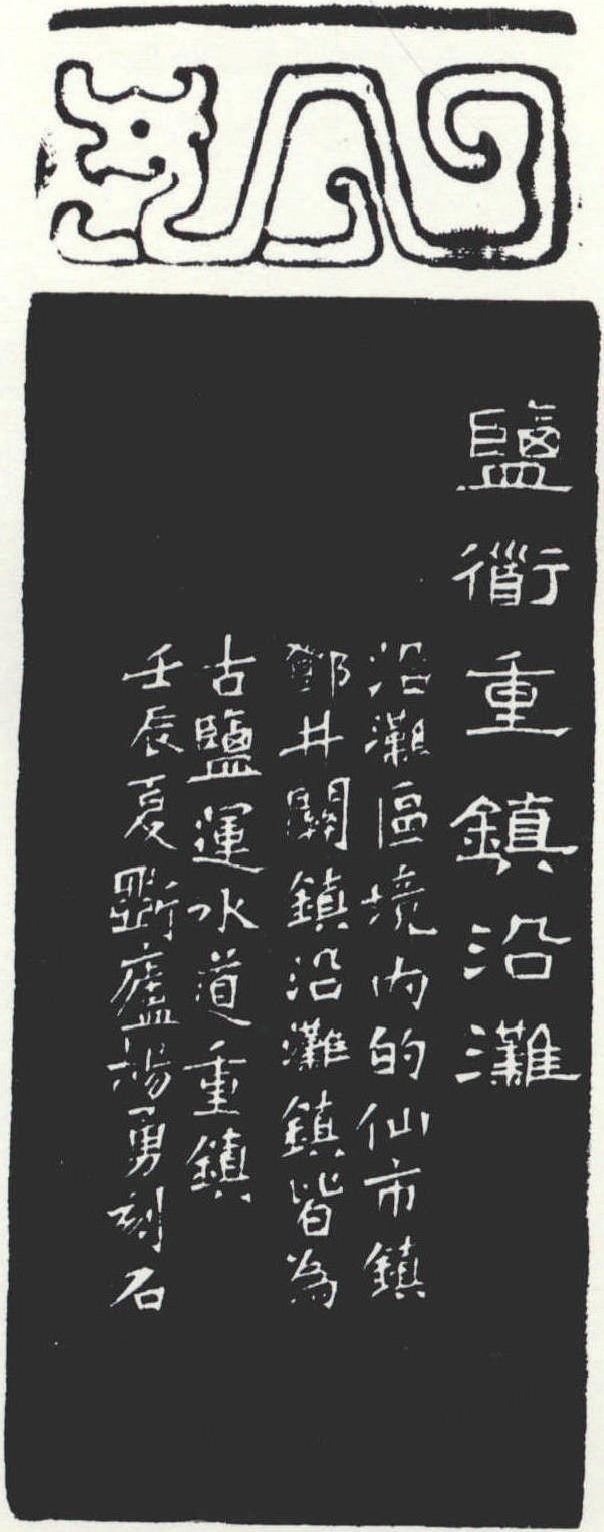 鹽衜重鎮沿灘
沿灘區境内的仙市鎮
鄧井關鎮沿灘鎮皆為
古鹽運水道重鎮
壬辰夏斲廬楊勇刻石